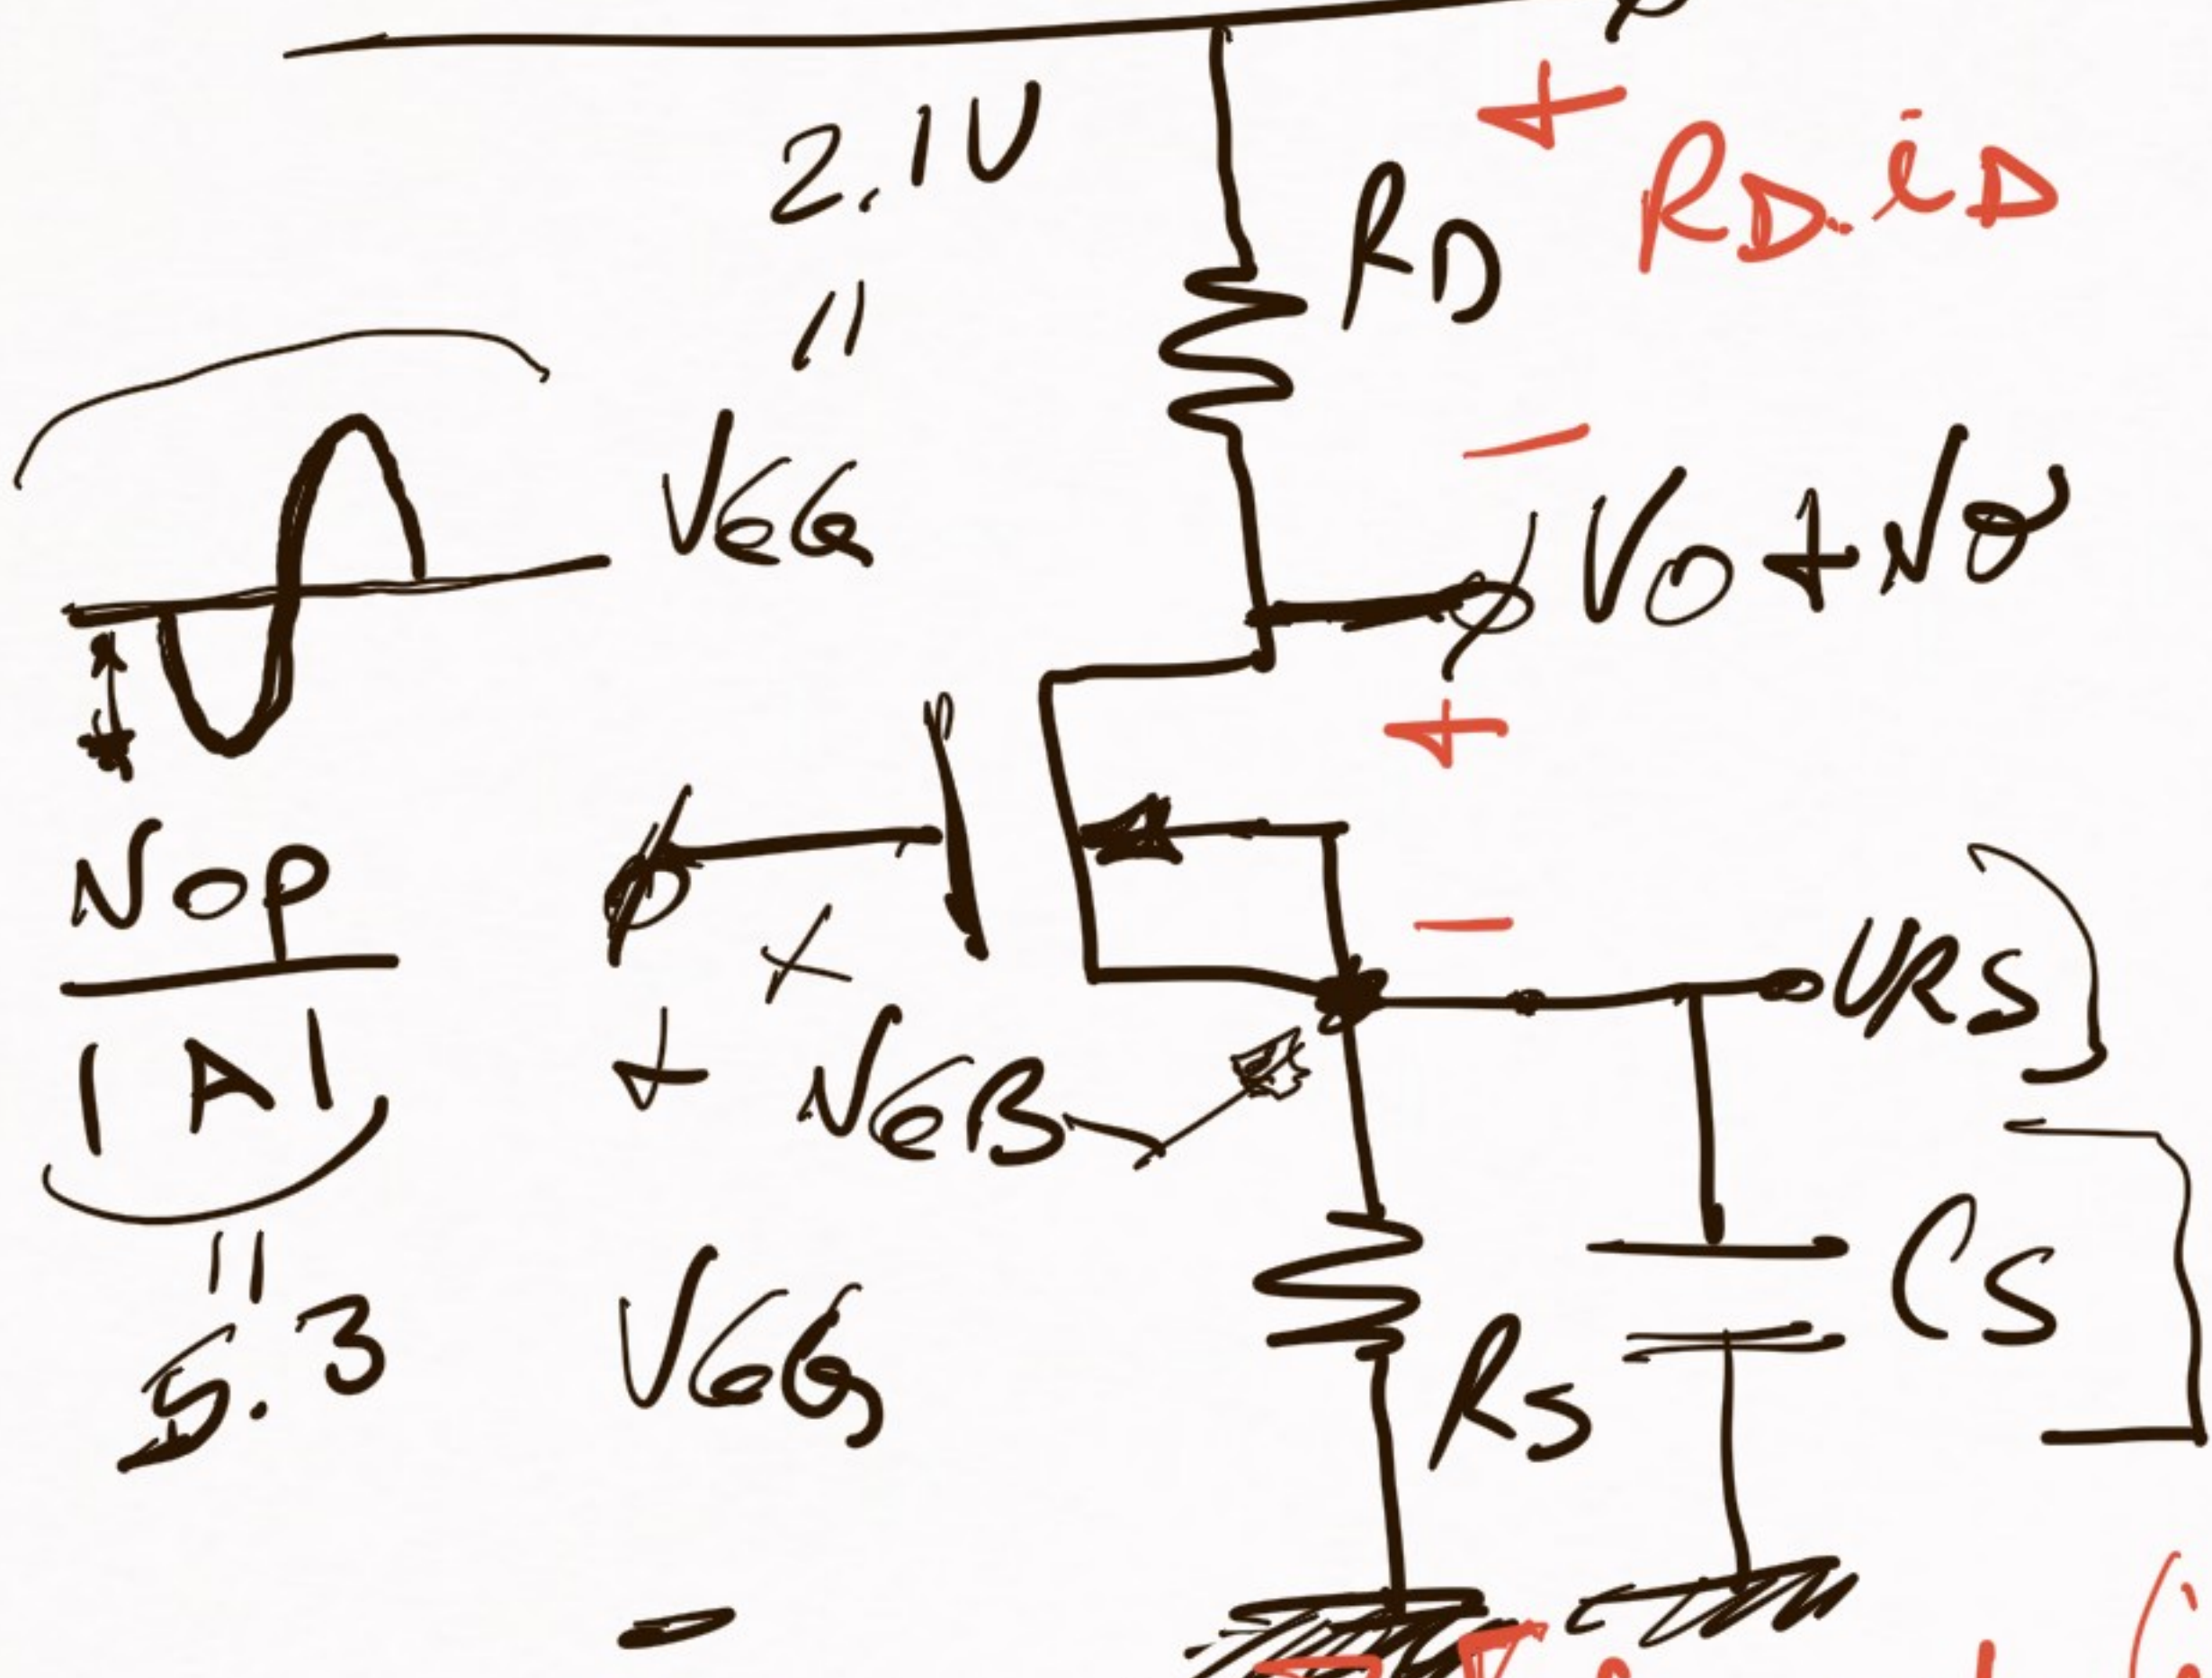 2.1V
+
RD.iD
RD
=
VGG
-
Vo + vo
+
vop
|A|
=
5.3
+
vGB
-
VRS
CS
VGG
RS
-